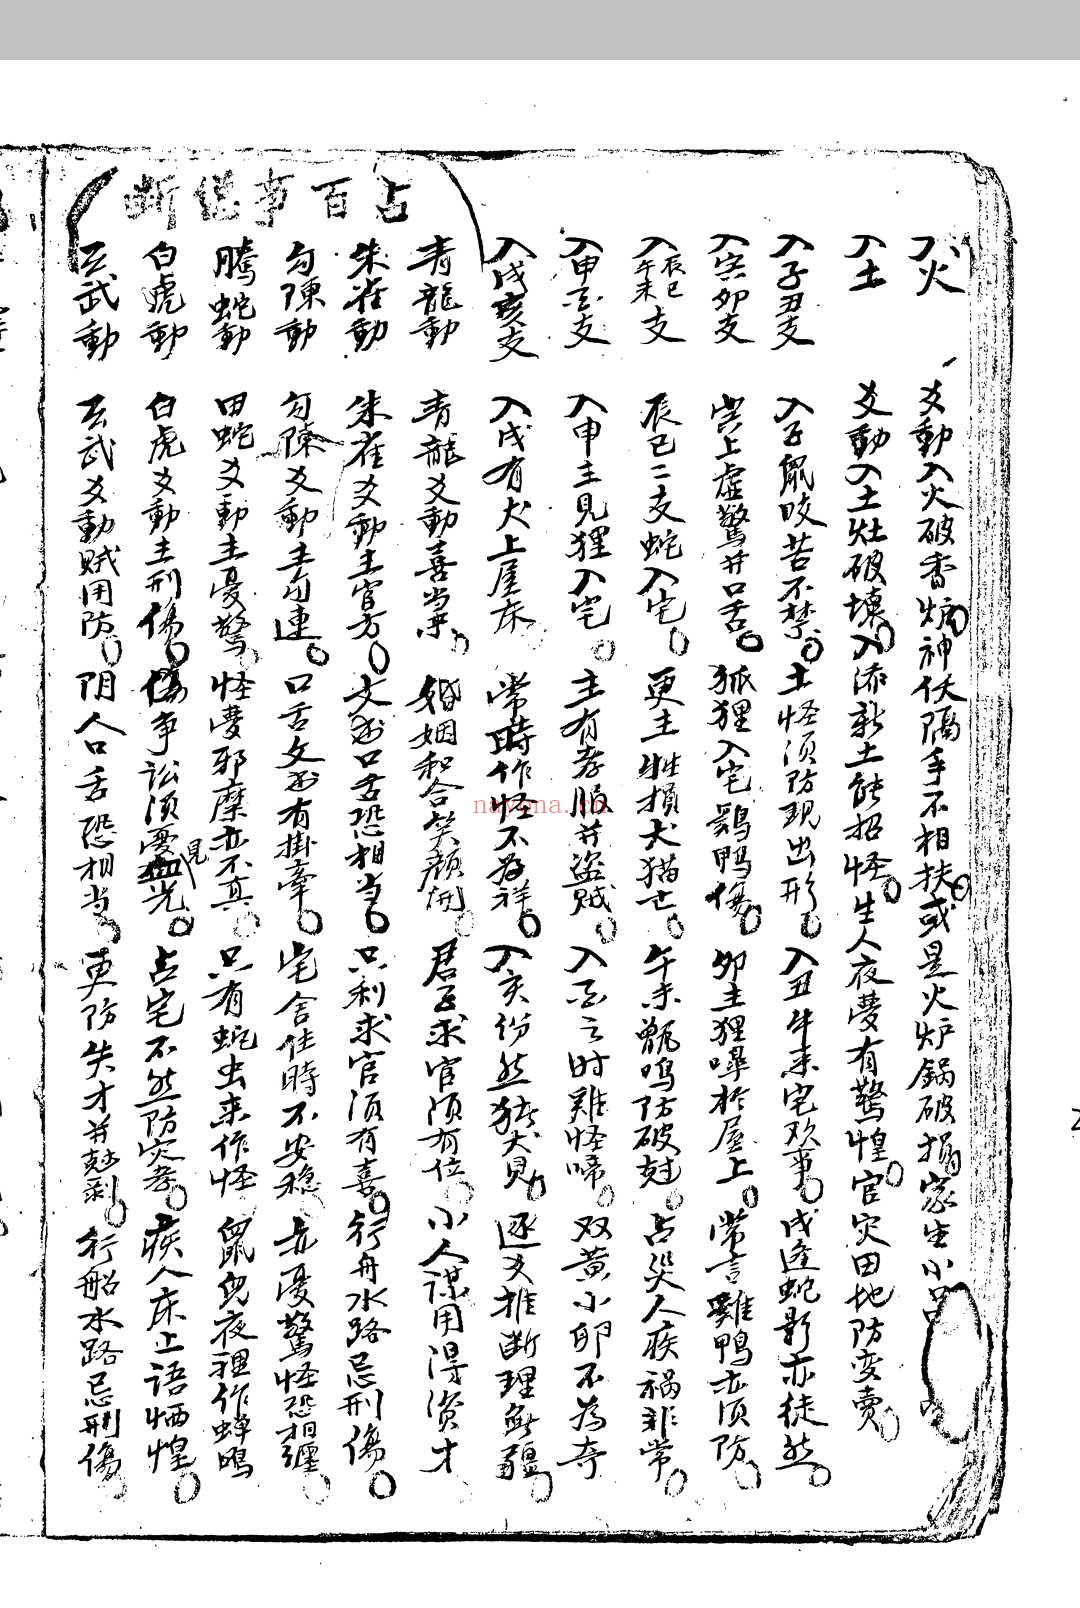 占百事總斷
入火　爻動入火破香炉神伏隔手不相扶或是火炉鍋破損家生小
入土　爻動入土灶破壞入添新土能招怪生人夜夢有驚惶官灾田地防变賣
入子丑支　入子鼠咬苦不禁土怪須防現出形入丑牛来宅欢事戌逢蛇影亦徒然
入寅卯支　寅上虚驚并口舌狐狸入宅鷄鴨傷卯主狸嗥於屋上常言雞鴨亦須防
入辰巳午未支　辰巳二支蛇入宅更主牲損犬猫亡午未甑鳴防破尅占災人疾祸非常
入申酉支　入申主見狸入宅主有孝服并盗賊入酉之时雞怪啼双黄小卵不為奇
入戌亥支　入戌有犬上屋床常時作怪不為祥入亥份然猪犬見逐爻推断理無疆
青龍動　青龍爻動喜当来婚姻和合笑顔開君子求官須有位小人謀用得資才
朱雀動　朱雀爻動主官方文書口舌恐相当只利求官須有喜行舟水路忌刑傷
勾陳動　勾陳爻動主勾連口舌文書有掛牽宅舍住時不安稳亦憂驚怪恐相纏
騰蛇動　田蛇爻動主憂驚怪夢邪魔亦不真只有蛇虫来作怪鼠鬼夜裡作蝉鳴
白虎動　白虎爻動主刑傷傷争訟須憂見血光占宅不然防灾孝疾人床上語恓惶
玄武動　玄武爻動賊用防阴人口舌恐相当更防失才并尅剥行船水路忌刑傷
nayona.cn